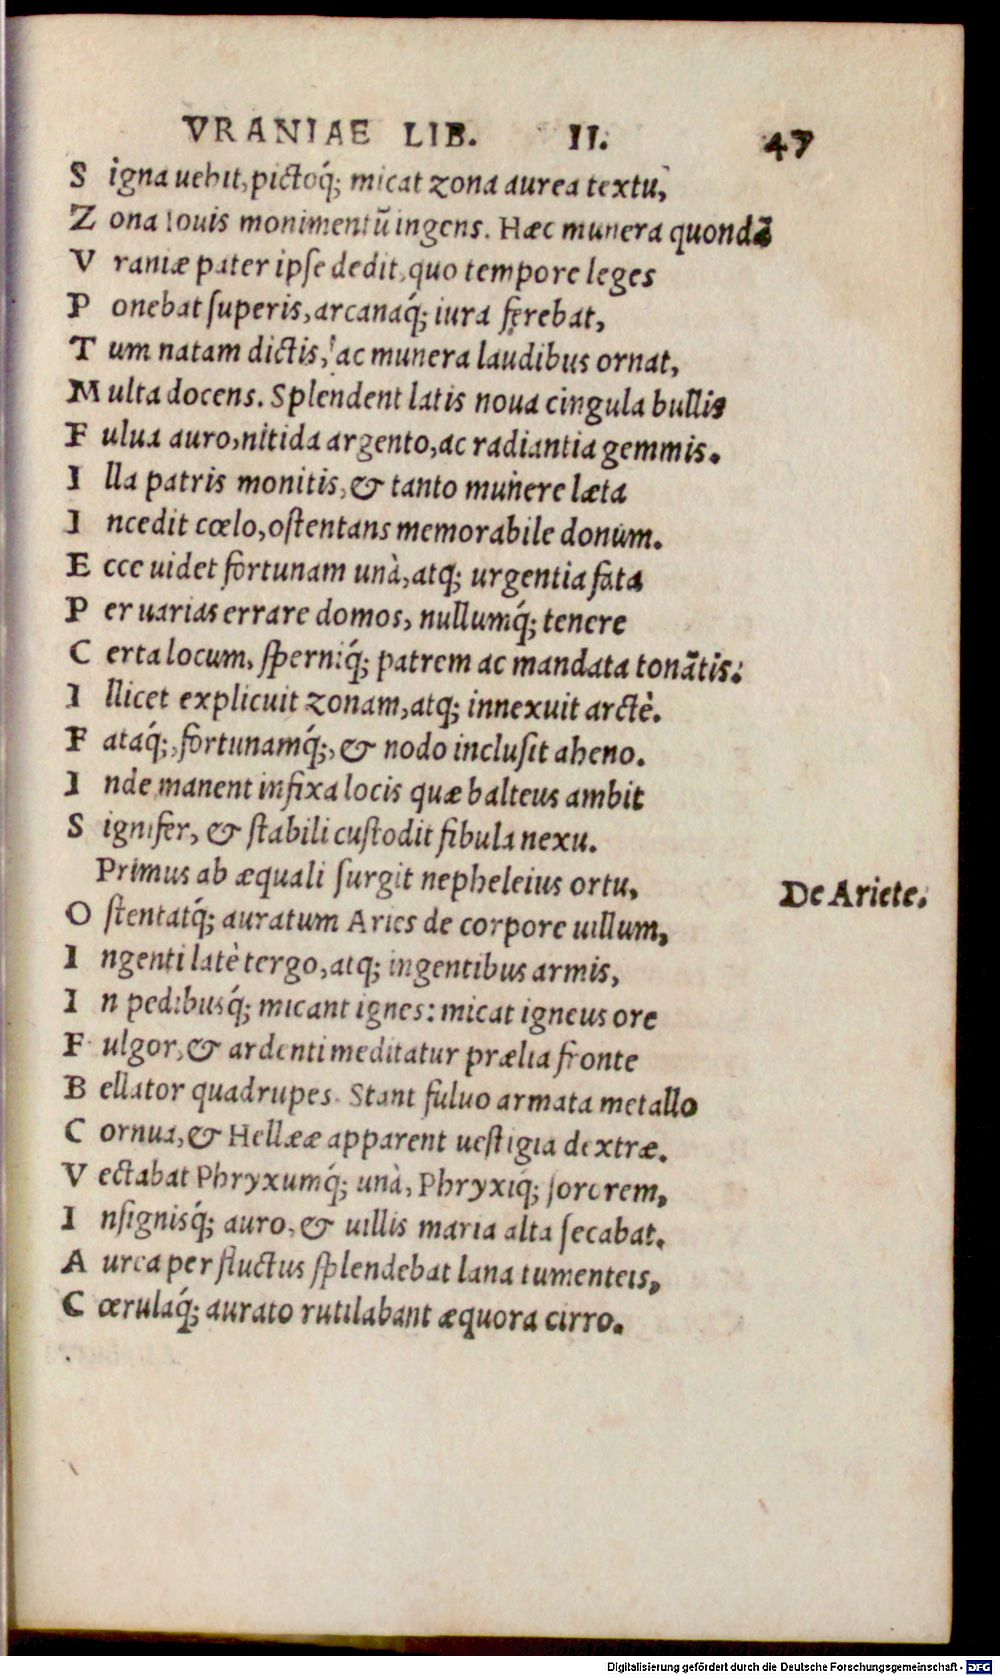 VRANIAE LIB. II. 47
S igna uehit, pictoq́; micat zona aurea textu,
Z ona Iouis monimentū ingens. Hæc munera quondā
V raniæ pater ipse dedit, quo tempore leges
P onebat superis, arcanaq́; iura ferebat,
T um natam dictis, ac munera laudibus ornat,
M ulta docens. Splendent latis noua cingula bullis
F ulua auro, nitida argento, ac radiantia gemmis.
I lla patris monitis, & tanto munere læta
I ncedit cœlo, ostentans memorabile donum.
E cce uidet fortunam unà, atq; urgentia fata
P er uarias errare domos, nullumq́; tenere
C erta locum, sperniq́; patrem ac mandata tonātis:
I llicet explicuit zonam, atq; innexuit arctè.
F ataq́;, fortunamq́;, & nodo inclusit aheno.
I nde manent infixa locis quæ balteus ambit
S ignifer, & stabili custodit fibula nexu.
Primus ab æquali surgit nepheleius ortu,
De Ariete.
O stentatq́; auratum Aries de corpore uillum,
I ngenti latè tergo, atq; ingentibus armis,
I n pedibusq́; micant ignes: micat igneus ore
F ulgor, & ardenti meditatur prælia fronte
B ellator quadrupes. Stant fuluo armata metallo
C ornua, & Hellææ apparent uestigia dextræ.
V ectabat Phryxumq́; unà, Phryxiq; sororem,
I nsignisq́; auro, & uillis maria alta secabat.
A urea per fluctus splendebat lana tumenteis,
C œrulaq́; aurato rutilabant æquora cirro.
Digitalisierung gefördert durch die Deutsche Forschungsgemeinschaft - DFG